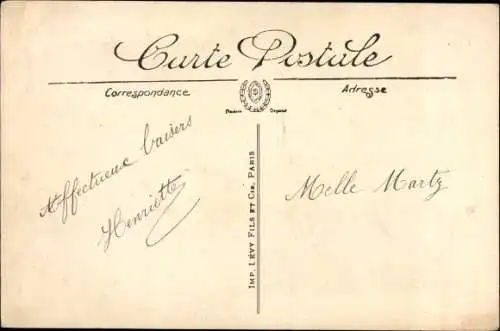 Carte Postale
Correspondance
Adresse
Affectueux baisers
Henriette
IMP. LÉVY FILS ET CIE, PARIS
Melle Martz